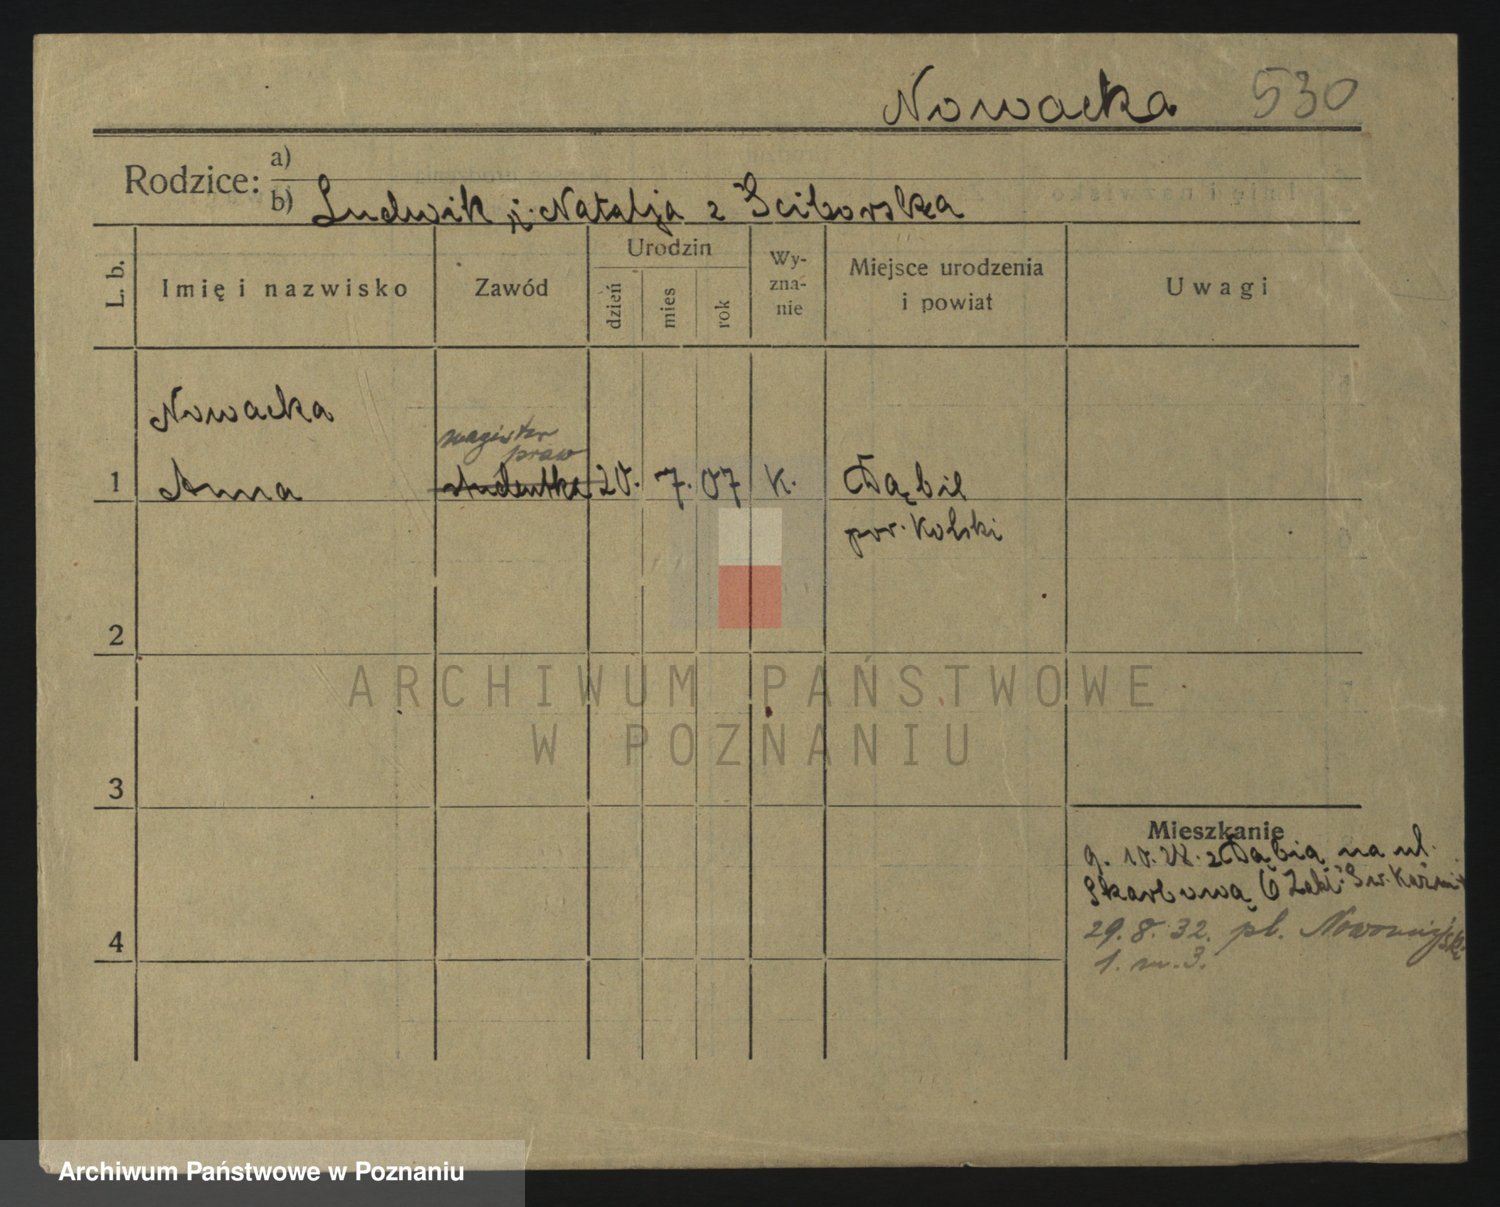 Nowacka 530
Rodzice: a)
b) Ludwik i Natalja z Ściborska
L. b. Imię i nazwisko Zawód Urodzin dzień mies rok Wy-zna-nie Miejsce urodzenia i powiat Uwagi
Nowacka
magister
praw
1 Anna studentka 20. 7. 07 K. Dąbie
pow. Kolski
2
ARCHIWUM PAŃSTWOWE
W POZNANIU
3
Mieszkanie
9. 10. 28. z Dąbia na ul.
Skarbową 6 Zakł. Św. Kaźmi
4 29. 8. 32. pl. Nowomiejski
1. m. 3.
Archiwum Państwowe w Poznaniu